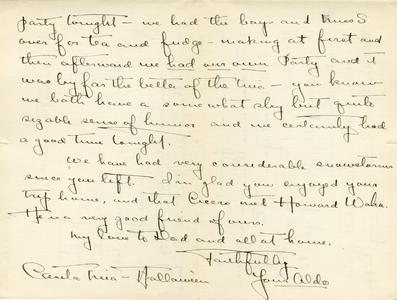 party tonight - we had the boys and
over for tea and fudge - making at first and
then afterward we had our own Party and it
was by far the better of the two - you know
we both have a somewhat shy but quite
sizable sense of humor and we certainly had
a good time tonight.
We have had very considerable snowstorms
since you left. I'm glad you enjoyed your
trip home, and that Cicero met Howard
He is a very good friend of ours.
My love to Dad and all at home.
Faithfully
Your Aldo
- Halloween